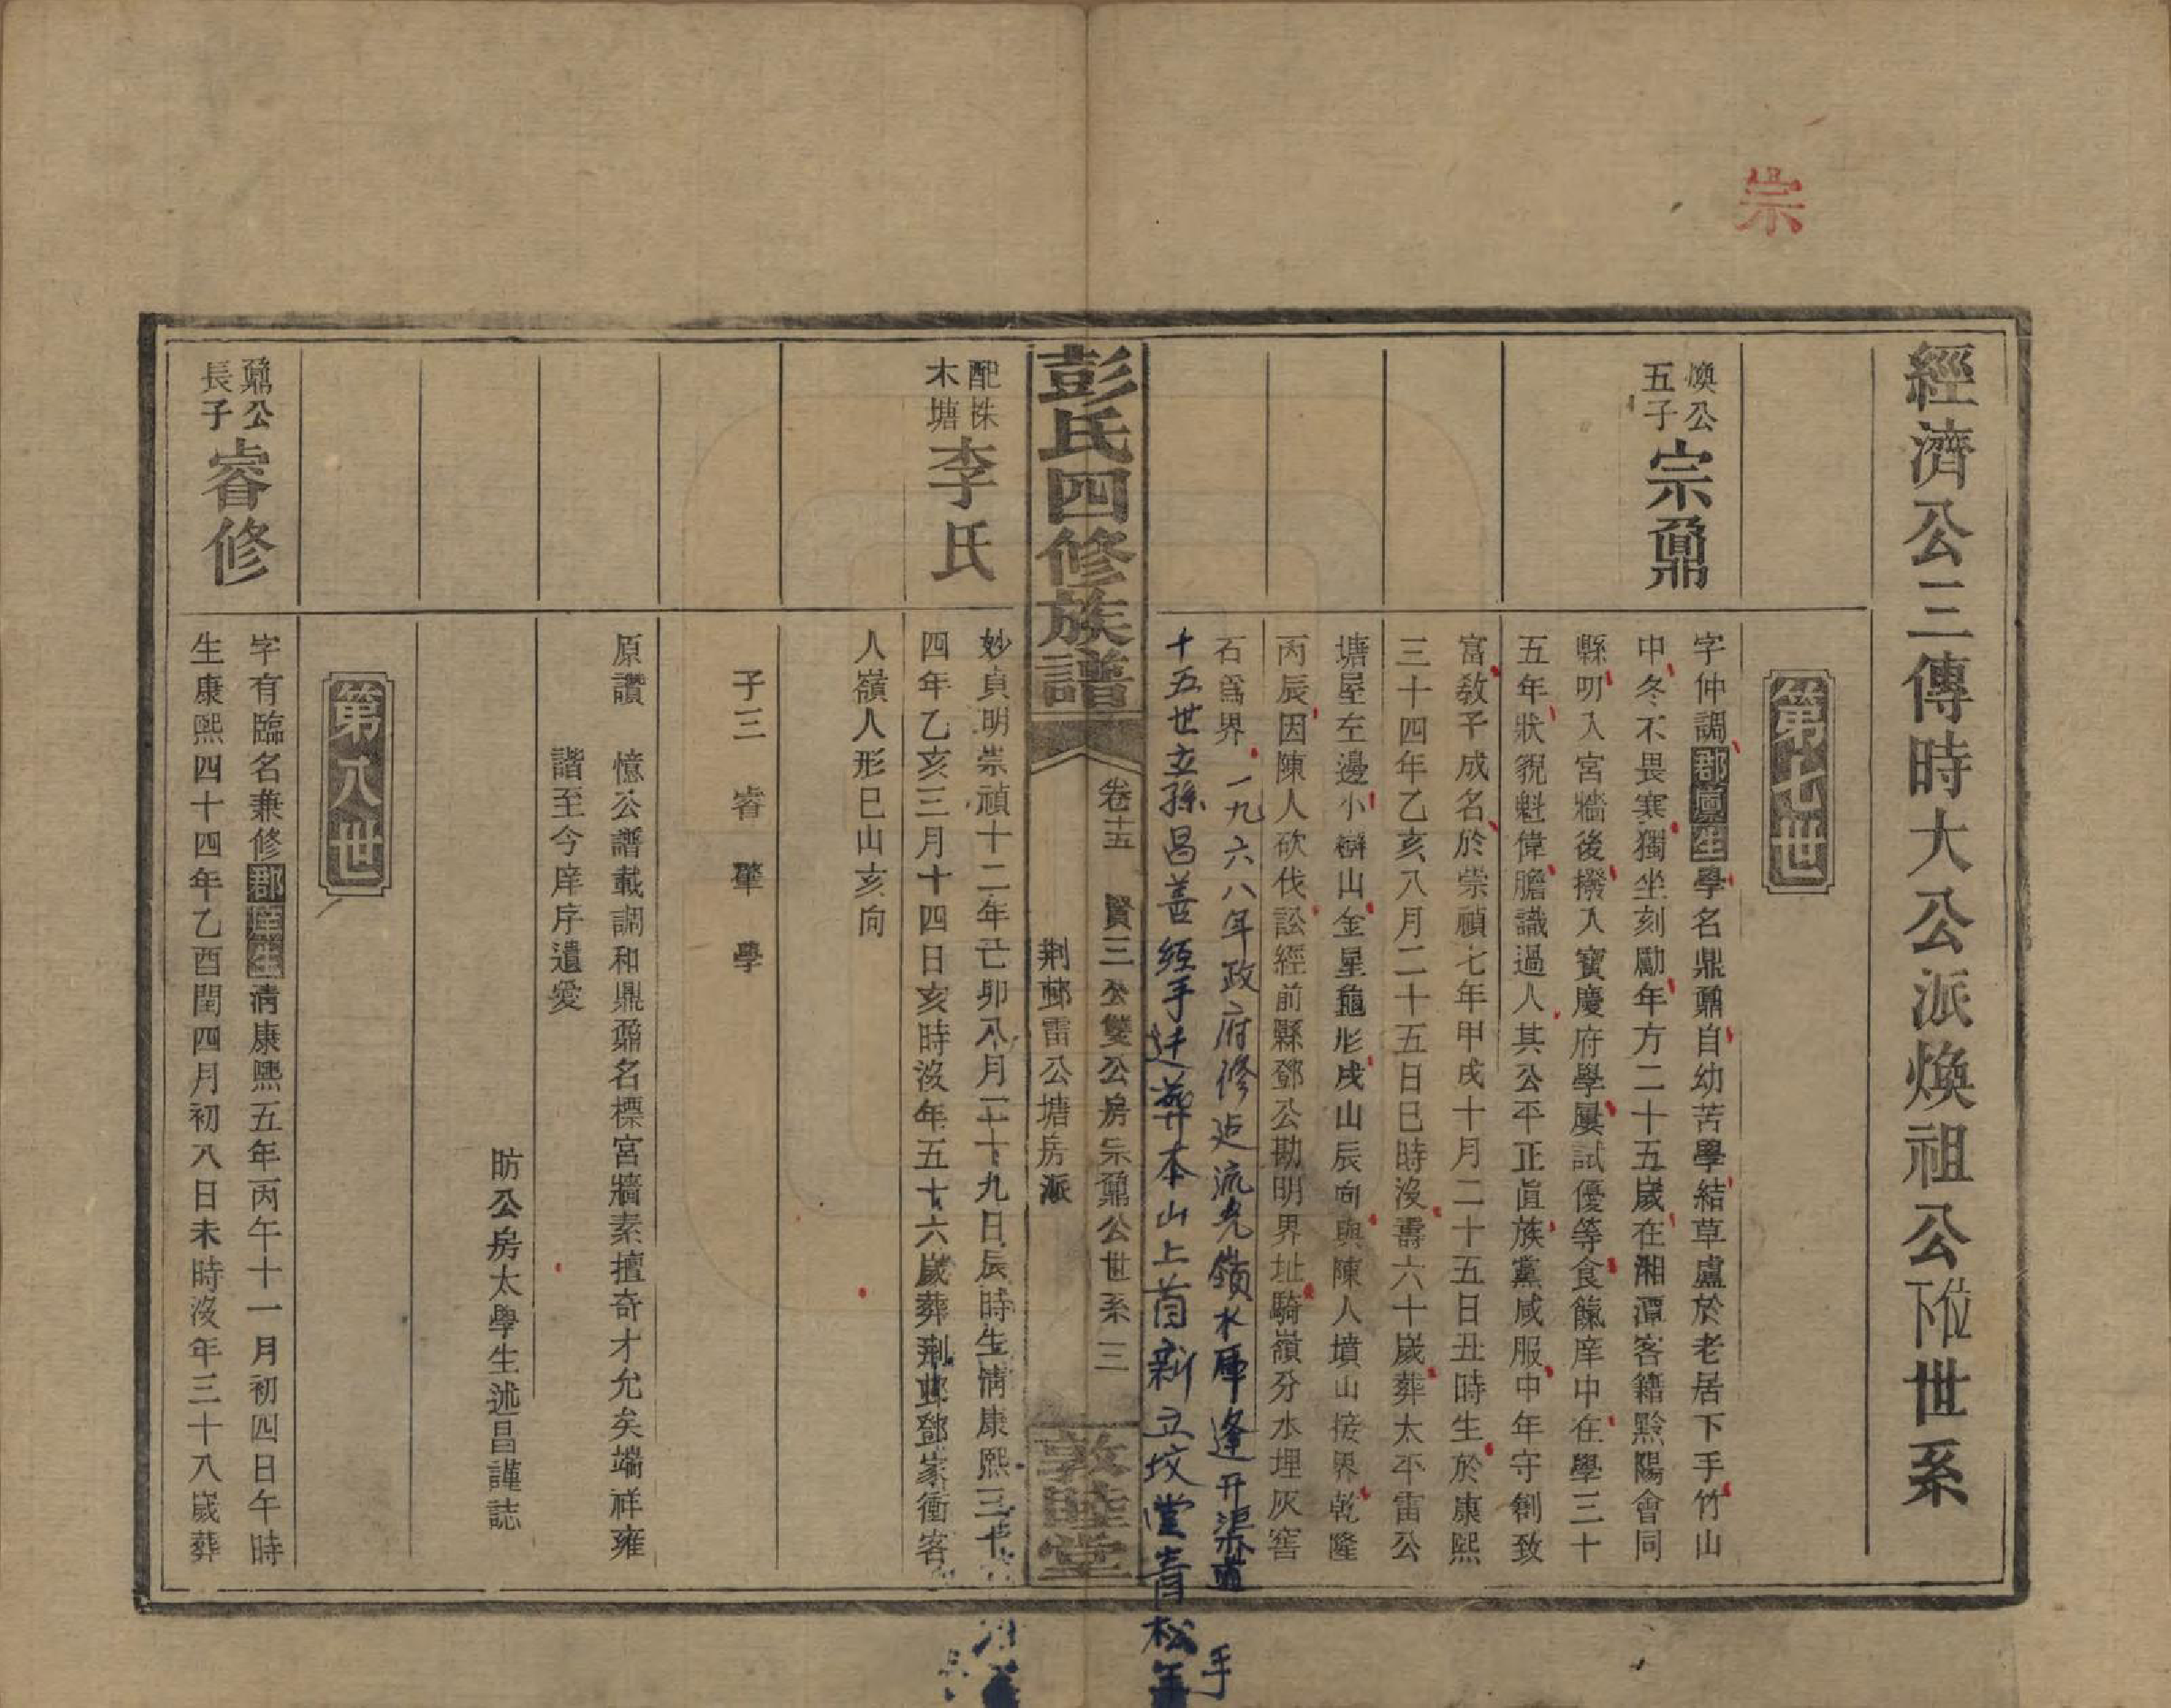 宗
經濟公三傳時大公派煥祖公位下世系
第七世
煥公五子 宗鼐
字仲調郡廩生學名鼎鼐自幼苦學結草盧於老居下手竹山
中冬不畏寒獨坐刻勵年方二十五歲在湘潭客籍黔陽會同
縣叨入宮牆後撥入寶慶府學屢試優等食餼庠中在學三十
五年狀貌魁偉膽識過人其公平正直族黨咸服中年守創致
富教子成名於崇禎七年甲戌十月二十五日丑時生於康熙
三十四年乙亥八月二十五日巳時沒壽六十歲葬太平雷公
塘屋左邊小欁山金星龜形戌山辰向與陳人墳山接界乾隆
丙辰因陳人砍伐訟經前縣鄧公勘明界址騎嶺分水埋灰窖
石為界 一九六八年政府修造流光嶺水庫逢开渠道手
十五世立孫昌善經手迁葬本山上首新立坟堂青松年
彭氏四修族譜
卷十五 賢三公雙公房宗鼐公世系 三
荆邺雷公塘房派
敦睦堂
配株木塘 李氏
妙貞明崇禎十二年己卯八月二十九日辰時生清康熙三十
四年乙亥三月十四日亥時沒年五十六歲葬荆邺鄧家衝客
人嶺人形巳山亥向
子三 睿 肇 學
原讚 憶公譜載調和鼎鼐名標宮牆素擅奇才允矣端祥雍
諧至今庠序遺愛
昉公房太學生述昌謹誌
第八世
鼐公長子 睿修
字有臨名兼修郡庠生清康熙五年丙午十一月初四日午時
生康熙四十四年乙酉閏四月初八日未時沒年三十八歲葬